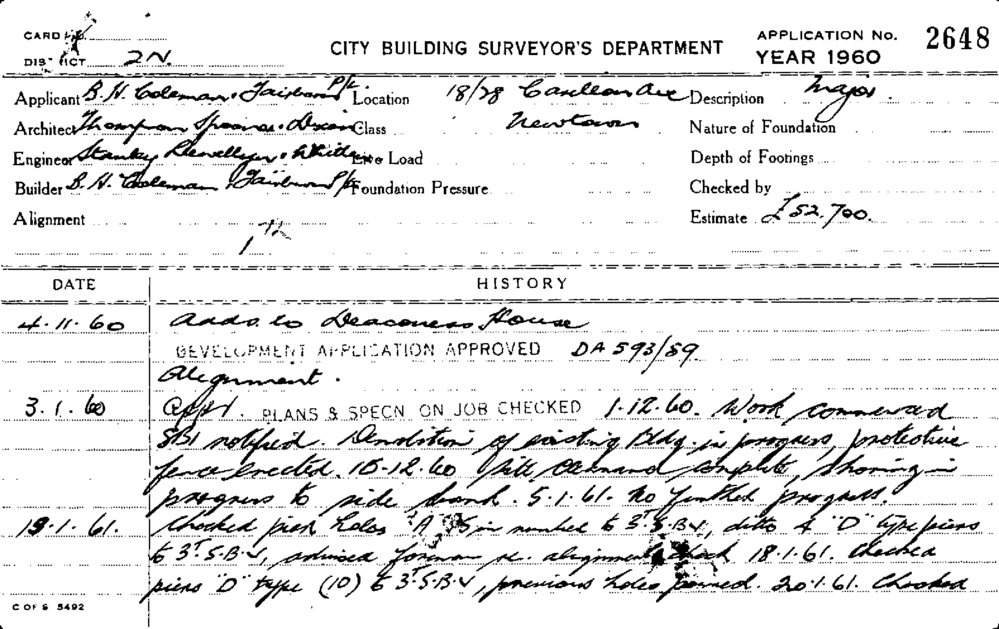 CARD No.
DISTRICT 2N.
CITY BUILDING SURVEYOR'S DEPARTMENT
APPLICATION No. 2648
YEAR 1960
Applicant B. H. Coleman, Fairburn P/L. Location 18/28 Carillon Ave Description Major
Architect Thompson Spooner & Dixon Class Newtown Nature of Foundation
Engineer Stanley Llewellyn & White Live Load Depth of Footings
Builder B. H. Coleman, Fairburn P/L Foundation Pressure Checked by
Alignment Estimate £52,700.
DATE HISTORY
4.11.60 Adds. to Deaconess House
DEVELOPMENT APPLICATION APPROVED DA 593/59
Alignment.
3.1.60 PLANS & SPECN. ON JOB CHECKED 1.12.60. Work commenced
SBI notified. Demolition of existing Bldg. in progress, protective
fence erected. 15-12-60 Site complete, shoring in
progress to side bound. 5.1.61. No further progress.
13.1.61. Checked holes "A" in number to 3T.S.B.V, ditto 4 "D" type piers
to 3T.S.B.V, advised foreman re. alignment check 18.1.61. Checked
piers "D" type (10) to 3T.S.B.V, previous holes poured. 20.1.61. Checked
C OF S 5492